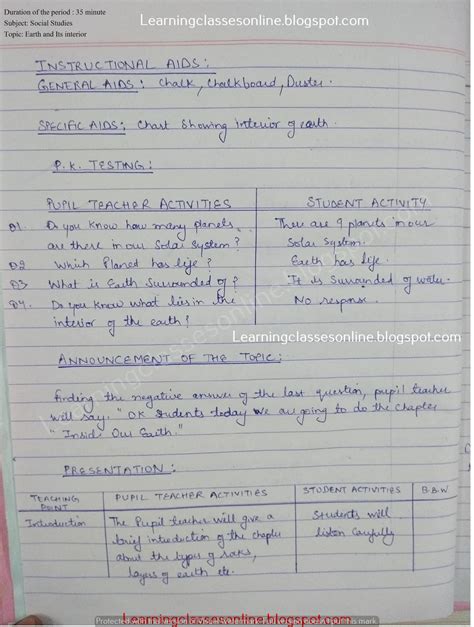 Duration of the period : 35 minute
Subject: Social Studies
Topic: Earth and Its interior
Learningclassesonline.blogspot.com
INSTRUCTIONAL AIDS:
GENERAL AIDS: Chalk, Chalkboard, Duster.
SPECIFIC AIDS: Chart Showing interior of earth.
P.K. TESTING:
PUPIL TEACHER ACTIVITIES STUDENT ACTIVITY
Q1. Do you know how many planets There are 9 planets in our
are there in our Solar System? Solar System.
Q2 Which Planed has life? Earth has life.
Q3 What is Earth Surrounded of? It is Surrounded of water.
Q4. Do you know what lies in the No response.
interior of the earth?
Learningclassesonline.blogspot.com
ANNOUNCEMENT OF THE TOPIC:
finding the negative answer of the last question, pupil teacher
will say. "OK Students today we are going to do the chapter
"Inside Our Earth."
PRESENTATION:
TEACHING POINT PUPIL TEACHER ACTIVITIES STUDENT ACTIVITIES B.B.W
Introduction The Pupil teacher will give a Students will
brief introduction of the chapter listen Carefully
about the types of
layers of earth etc.
Learningclassesonline.blogspot.com